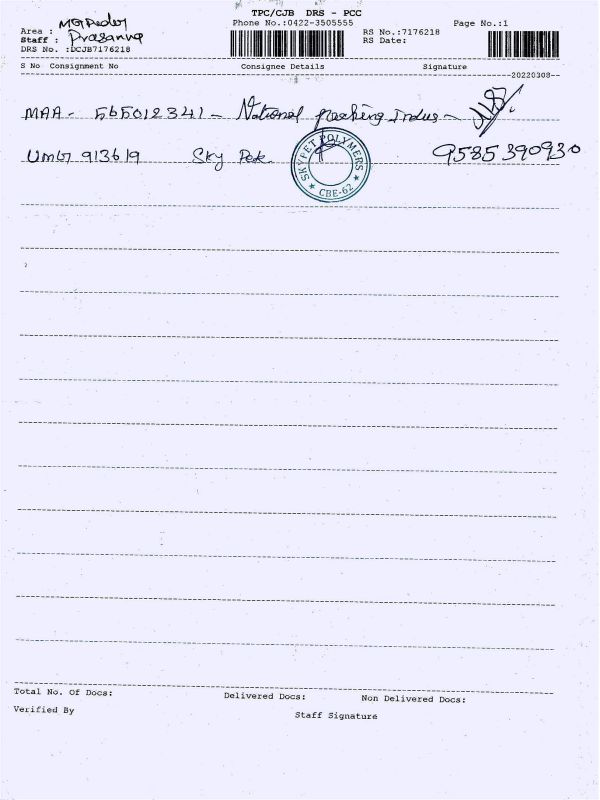 TPC/CJB DRS - PCC
Phone No.:0422-3505555
Page No.:1
Area :
Staff : Prasanna
DRS No. :DCJB7176218
RS No.:7176218
RS Date:
S No Consignment No Consignee Details Signature
20220308
MAA - 565012341 - National packing Indus -
UMB7 913619 Sky Pet
SKYPET POLYMERS
CBE-62
9585390930
Total No. Of Docs: Delivered Docs: Non Delivered Docs:
Verified By Staff Signature